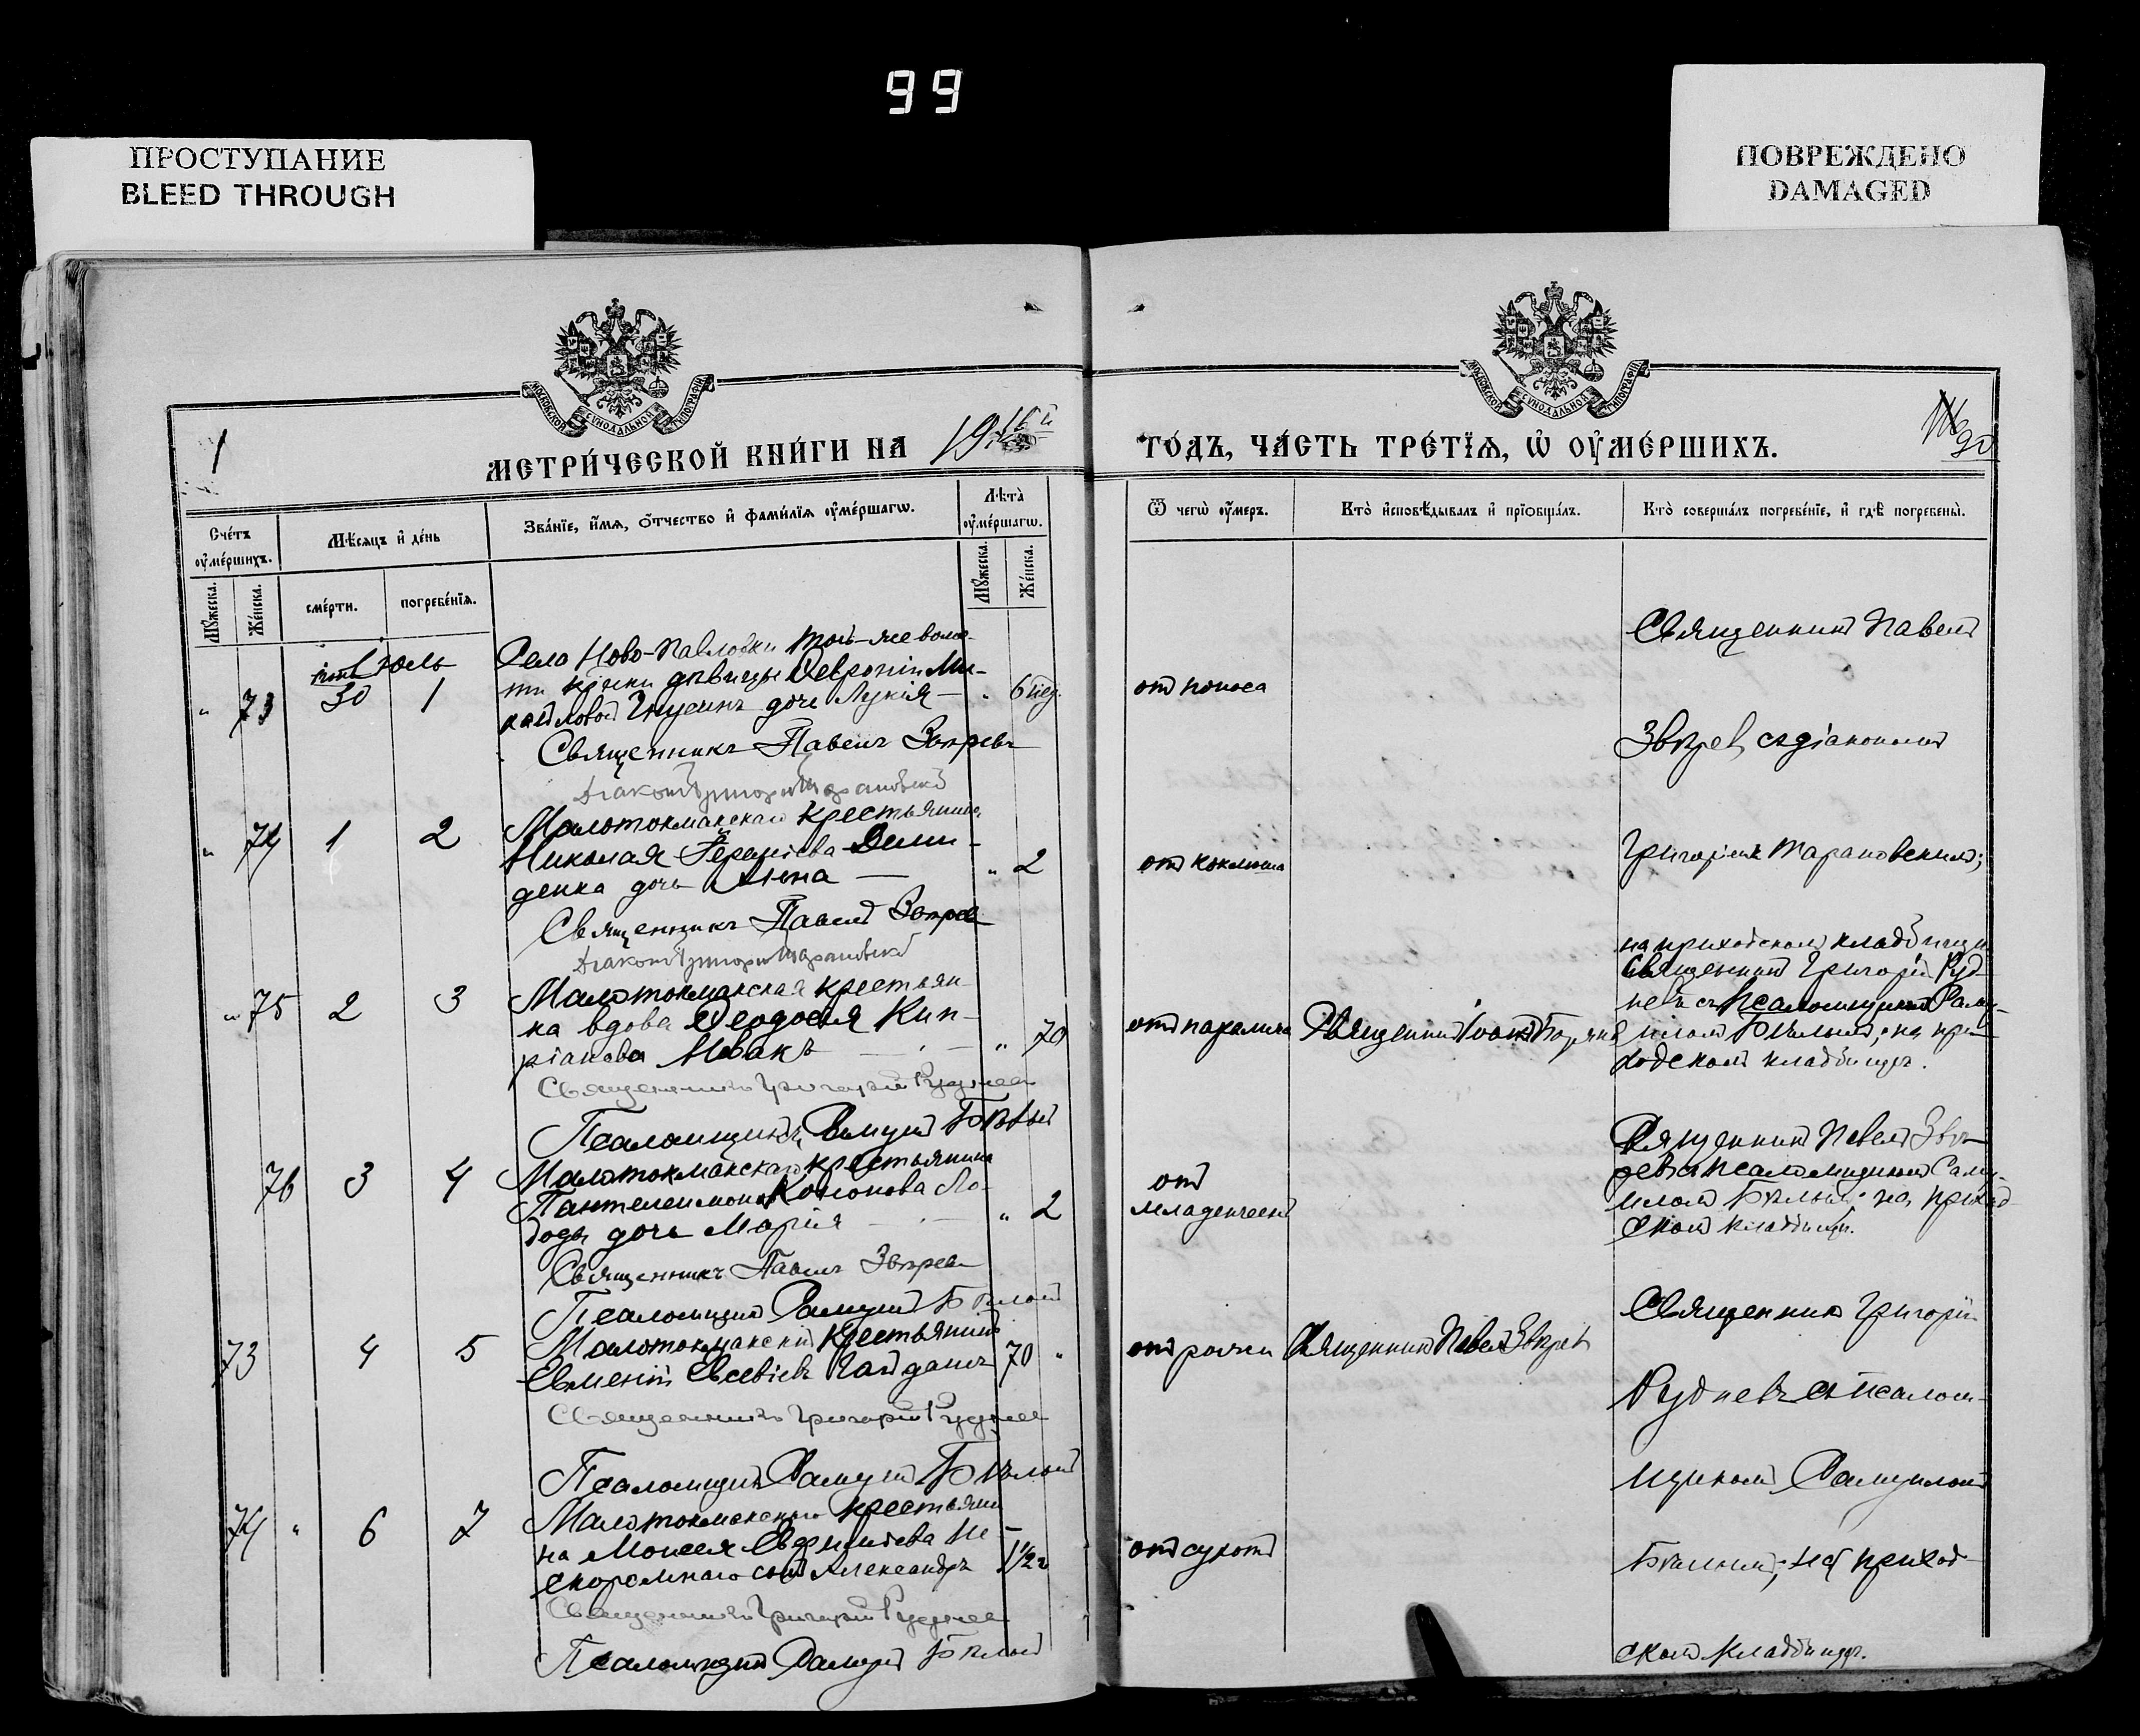 99
ПРОСТУПАНИЕ
BLEED THROUGH
ПОВРЕЖДЕНО
DAMAGED
МОСКОВСКОЙ СѴНОДАЛЬНОЙ ТИПОГРАФІИ
МОСКОВСКОЙ СѴНОДАЛЬНОЙ ТИПОГРАФІИ
1
МЕТРИ́ЧЕСКОЙ КНИ́ГИ НА 1916й
ГО́ДЪ, ЧА́СТЬ ТРЕ́ТЇѦ, Ѡ҆ ОУ҆МЕ́РШИХЪ.
90
Сче́тъ оу҆ме́ршихъ.
Мѣ́сяцъ и҆ де́нь
Зва́нїе, и҆́мѧ, ѻ҆́тчество и҆ фами́лїѧ оу҆ме́ршагѡ.
Лѣ́та оу҆ме́ршагѡ.
Мꙋ́жеска.
Же́нска.
сме́рти.
погребе́нїѧ.
Мꙋ́жеска.
Же́нска.
Ѿ чегѡ̀ оу҆́меръ.
Кто̀ и҆сповѣ́дывалъ и҆ прїѡбща́лъ.
Кто̀ соверша́лъ погребе́нїе, и҆ гдѣ̀ погребены̀.
Іюль
" 73 30 1
Села Ново-Павловки той-же волос-
ти крест. дѣвицы Февроніи Ми-
хайловой дочь Лукія — " 6 нед.
Священникъ Павелъ Звѣревъ
Діаконъ Григорій Тарановскій
отъ поноса
Священникъ Павелъ
Звѣревъ съ діакономъ
" 74 1 2
Малотокмакскаго крестьянина
Николая Герасіева Деми-
денка дочь Анна — " 2
Священникъ Павелъ Звѣревъ
Діаконъ Григорій Тарановскій
отъ коклюша
Григоріемъ Тарановскимъ;
на приходскомъ кладбищѣ
" 75 2 3
Малотокмакская крестьян-
ка вдова Феодосія Кип-
ріанова — " 70
Священникъ Григорій Рудневъ
Псаломщикъ Самуилъ Бѣлый
отъ паралича
Священникъ Іоаннъ
Священникъ Григорій Руд-
невъ съ псаломщикомъ Саму-
иломъ Бѣлымъ; на при-
ходскомъ кладбищѣ.
76 3 4
Малотокмакскаго крестьянина
Пантелеимона Кононова Ло-
боды дочь Марія — " 2
Священникъ Павелъ Звѣревъ
Псаломщикъ Самуилъ Бѣлый
отъ
младенческ.
Священникъ Павелъ Звѣ-
ревъ съ псаломщикомъ Саму-
иломъ Бѣлымъ; на приход-
скомъ кладбищѣ.
73 4 5
Малотокмакскій крестьянинъ
Евменій Евсевіевъ Гайданъ 70 "
Священникъ Григорій Рудневъ
Псаломщикъ Самуилъ Бѣлый
отъ рожи
Священникъ Павелъ Звѣревъ
Священникъ Григорій
Рудневъ съ псалом-
74 " 6 7
Малотокмакскаго крестьяни-
на Моисея Евфиміева Не-
скоромнаго сынъ Александръ 1½ г
Священникъ Григорій Рудневъ
Псаломщикъ Самуилъ Бѣлый
отъ сухотъ
щикомъ Самуиломъ
Бѣлымъ; на приход-
скомъ кладбищѣ.